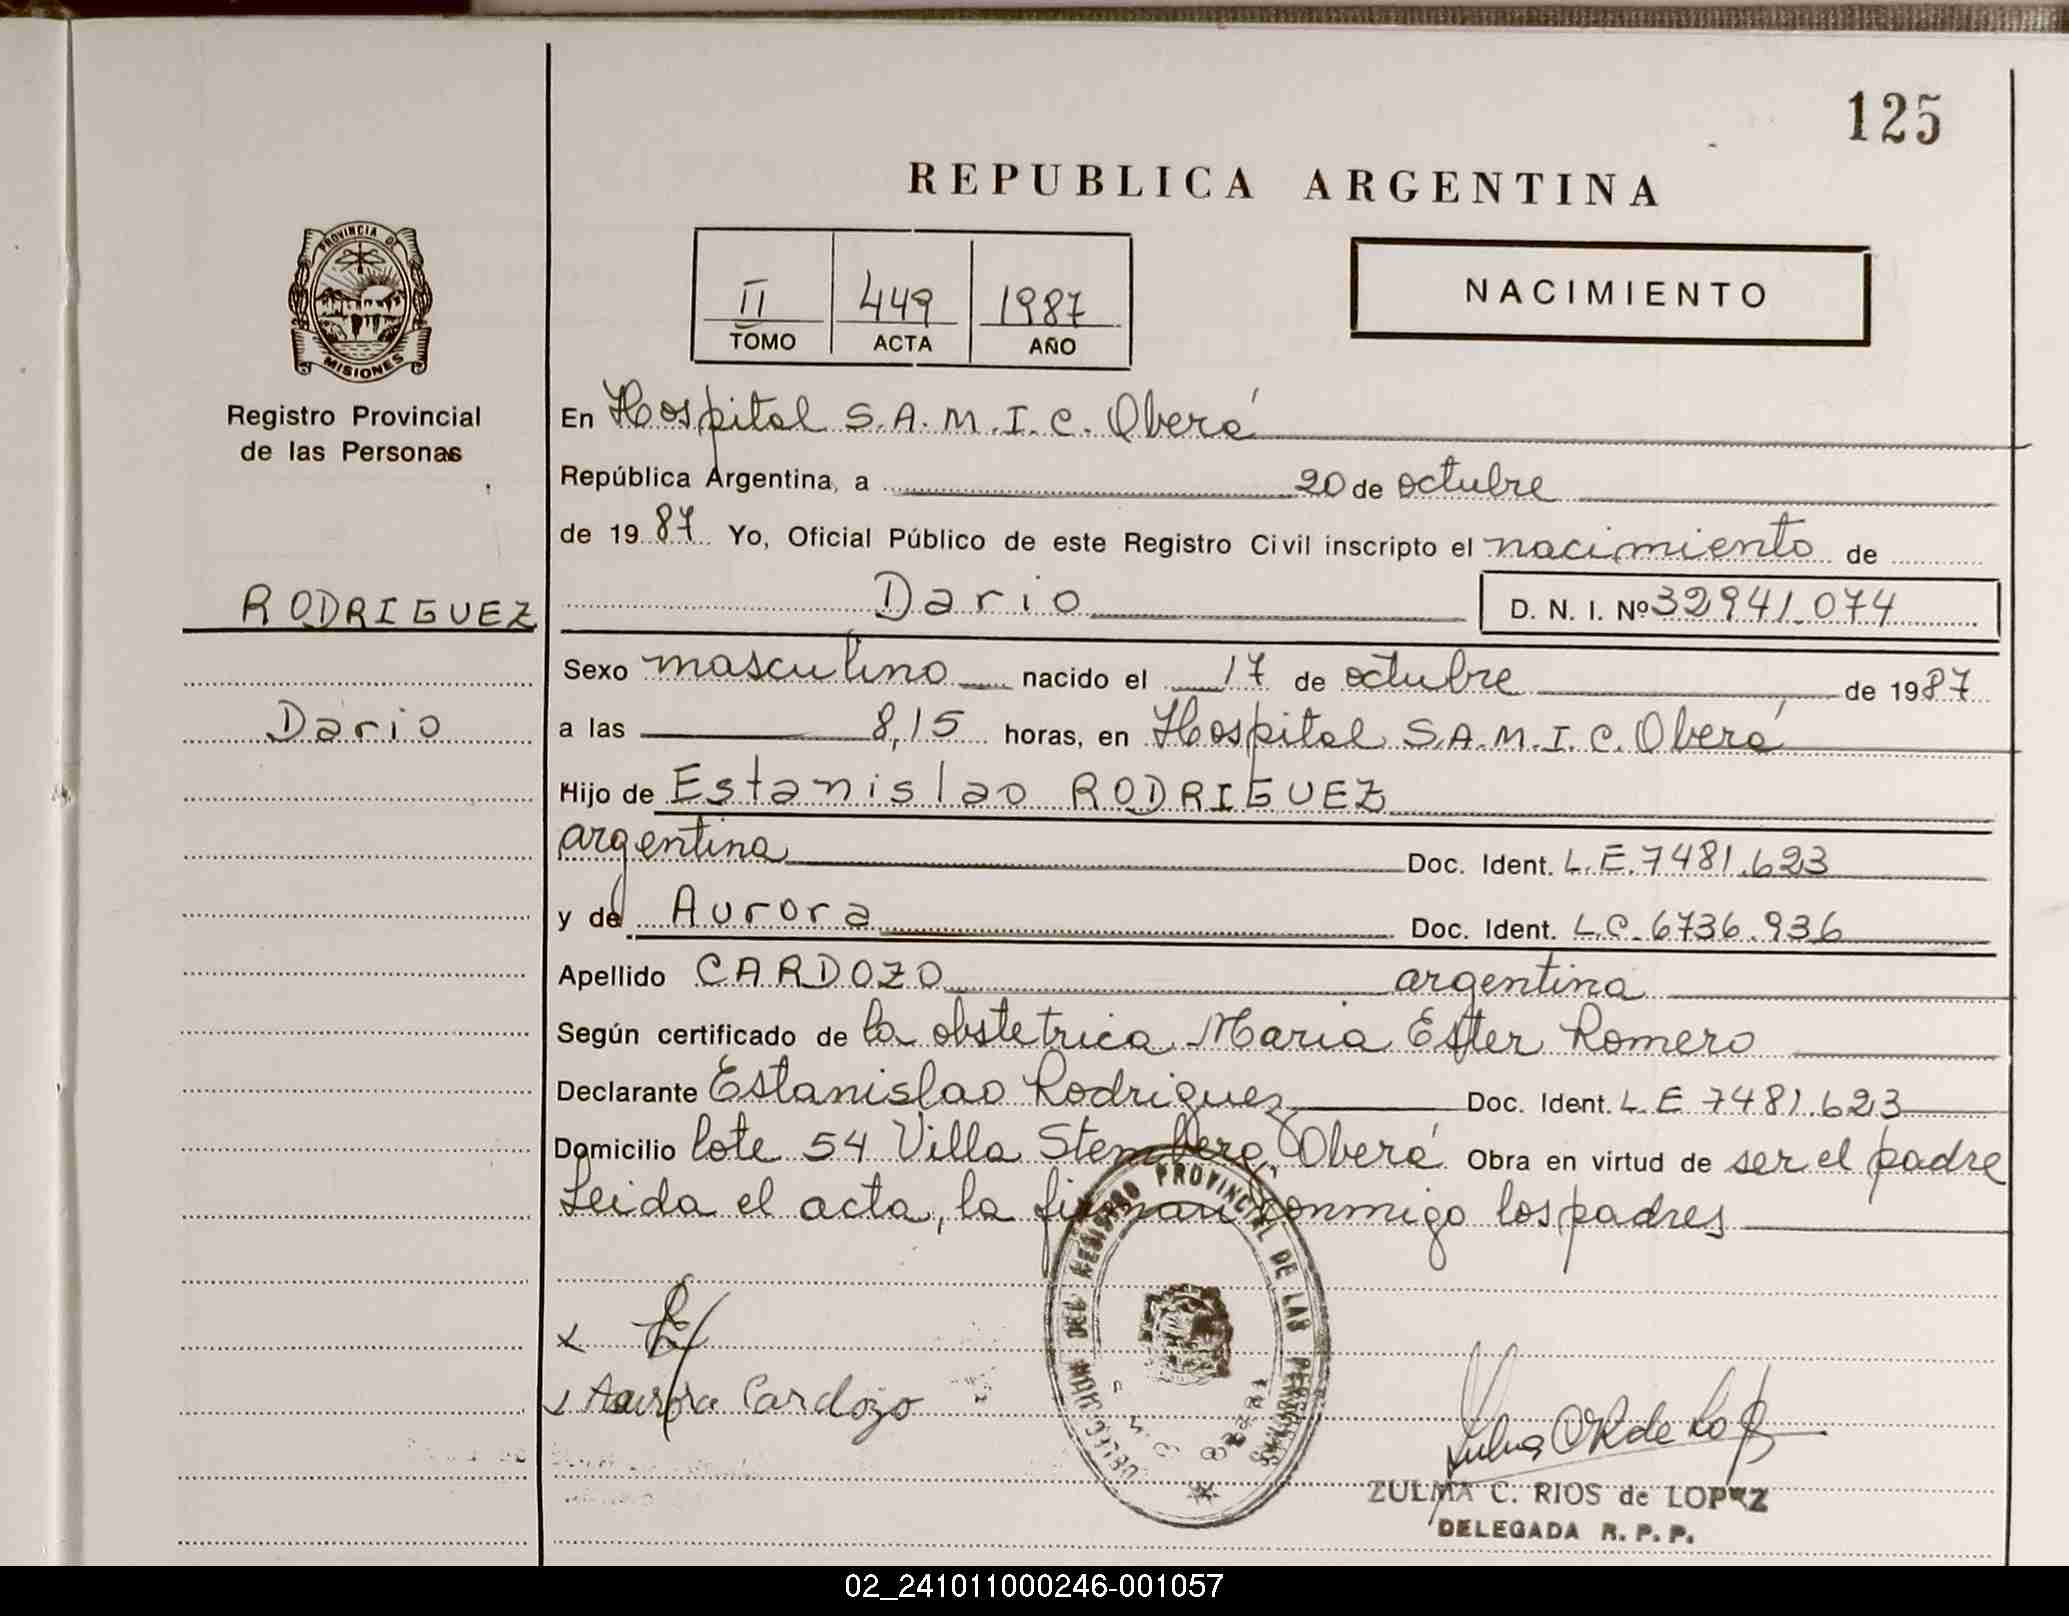 125
REPUBLICA ARGENTINA
PROVINCIA DE
MISIONES
Registro Provincial
de las Personas
II 449 1987
TOMO ACTA AÑO
NACIMIENTO
En Hospital S.A.M.I.C. Oberá
República Argentina, a 20 de octubre
de 1987 Yo, Oficial Público de este Registro Civil inscripto el nacimiento de
RODRIGUEZ
Dario D. N. I. Nº 32941.074
Sexo masculino nacido el 17 de octubre de 1987
Dario
a las 8,15 horas, en Hospital S.A.M.I.C. Oberá
Hijo de Estanislao RODRIGUEZ
argentina Doc. Ident. L.E. 7481.623
y de Aurora Doc. Ident. L.C. 6736.936
Apellido CARDOZO argentina
Según certificado de la obstetrica Maria Ester Romero
Declarante Estanislao Rodriguez Doc. Ident. L.E 7481.623
Domicilio lote 54 Villa Stemberg, Oberá Obra en virtud de ser el padre
Leida el acta, la firman conmigo los padres
DEL REGISTRO PROVINCIAL DE LAS PERSONAS
x
x Aurora Cardozo
ZULMA C. RIOS de LOPEZ
DELEGADA R. P. P.
02_241011000246-001057